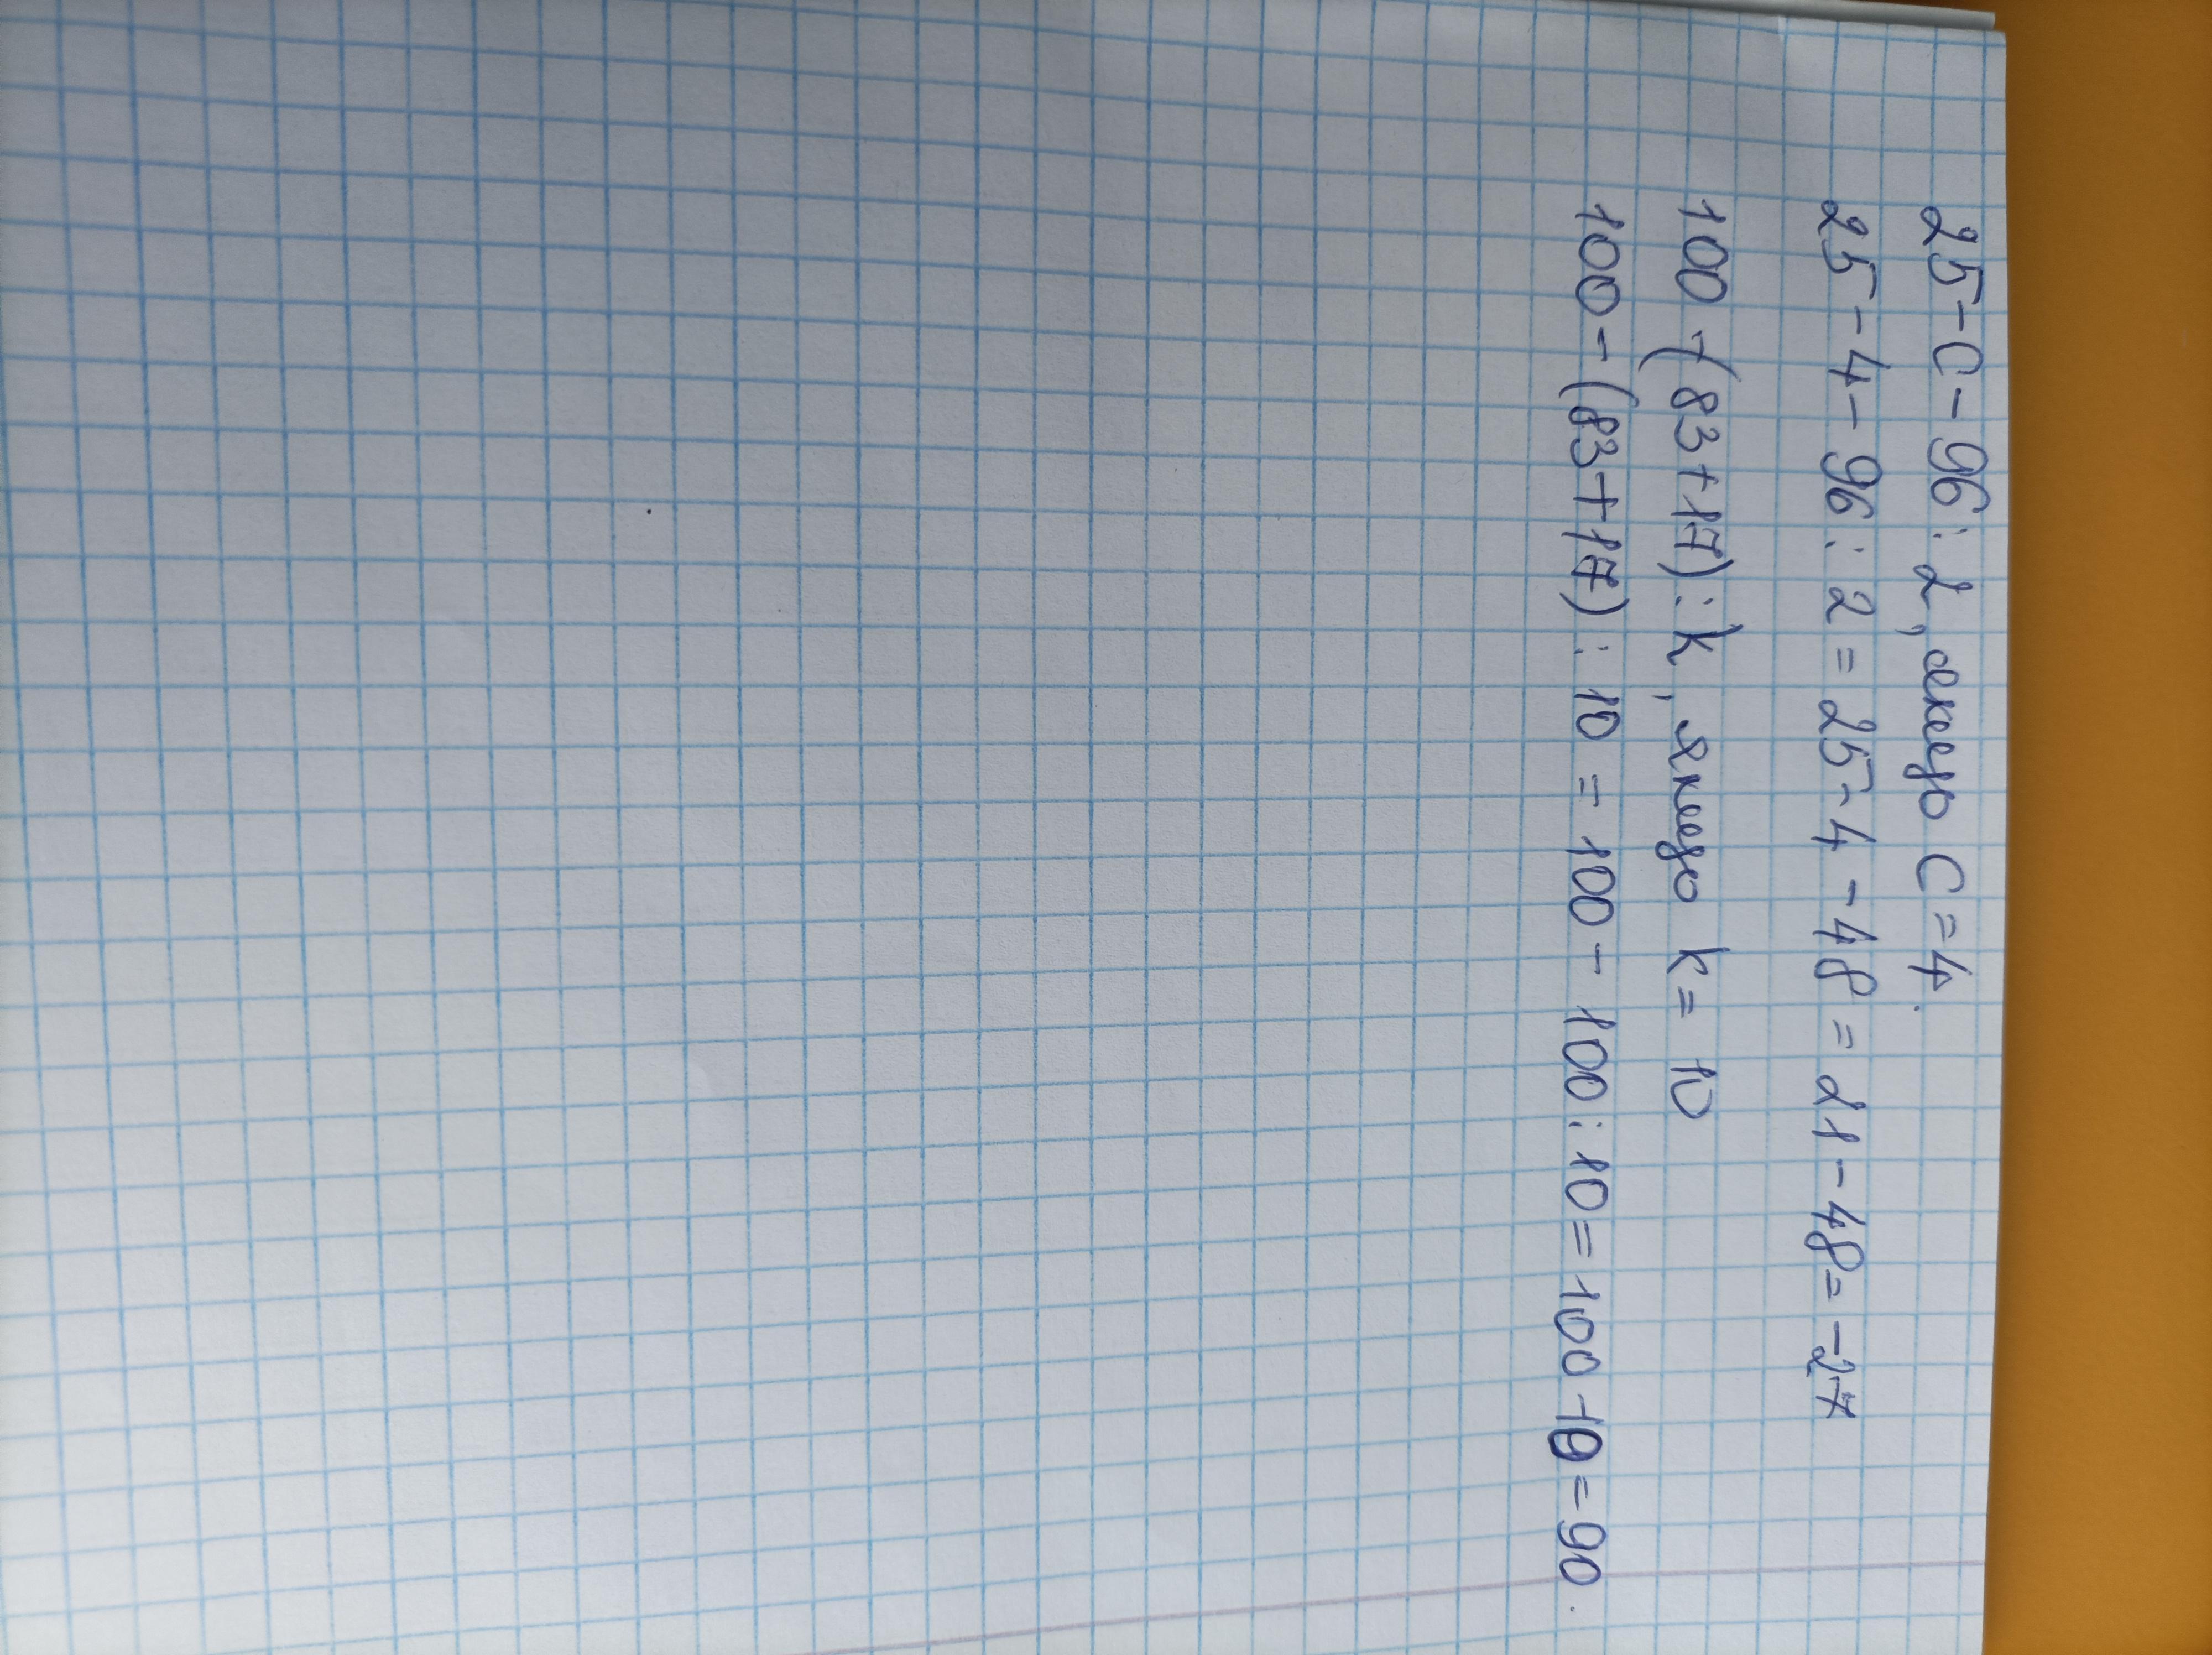 25-c-96:2, якщо c=4.
25-4-96:2=25-4-48=21-48=-27
100-(83+17):k, якщо k=10
100-(83+17):10=100-100:10=100-10=90.